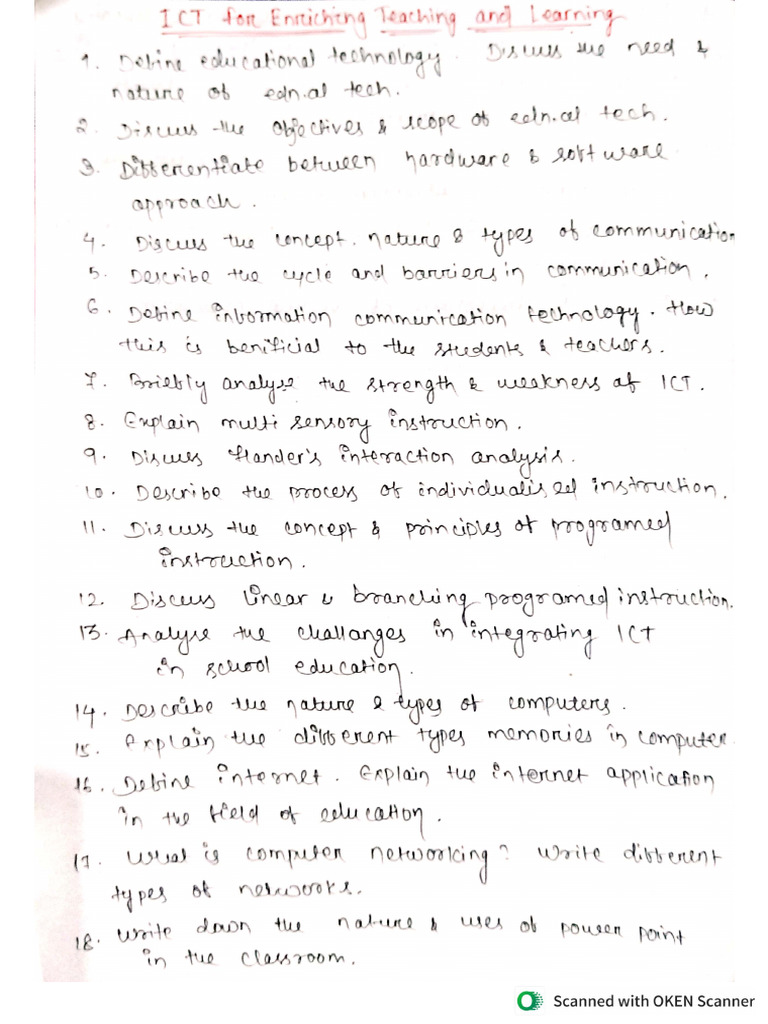 ICT for Enriching Teaching and Learning
1. Define educational technology. Discuss the need &
nature of edn.al tech.
2. Discuss the objectives & scope of edn.al tech.
3. Differentiate between hardware & software
approach.
4. Discuss the concept, nature & types of communication
5. Describe the cycle and barriers in communication.
6. Define information communication technology. How
this is benificial to the students & teachers.
7. Briefly analyse the strength & weakness of ICT.
8. Explain multi sensory instruction.
9. Discuss flander's interaction analysis.
10. Describe the process of individualised instruction.
11. Discuss the concept & principles of programed
instruction.
12. Discuss linear & branching programed instruction.
13. Analyse the challanges in integrating ICT
in school education.
14. Describe the nature & types of computers.
15. Explain the different types memories in computer
16. Define internet. Explain the internet application
in the field of education.
17. What is computer networking? Write different
types of networks.
18. Write down the nature & uses of power point
in the classroom.
Scanned with OKEN Scanner